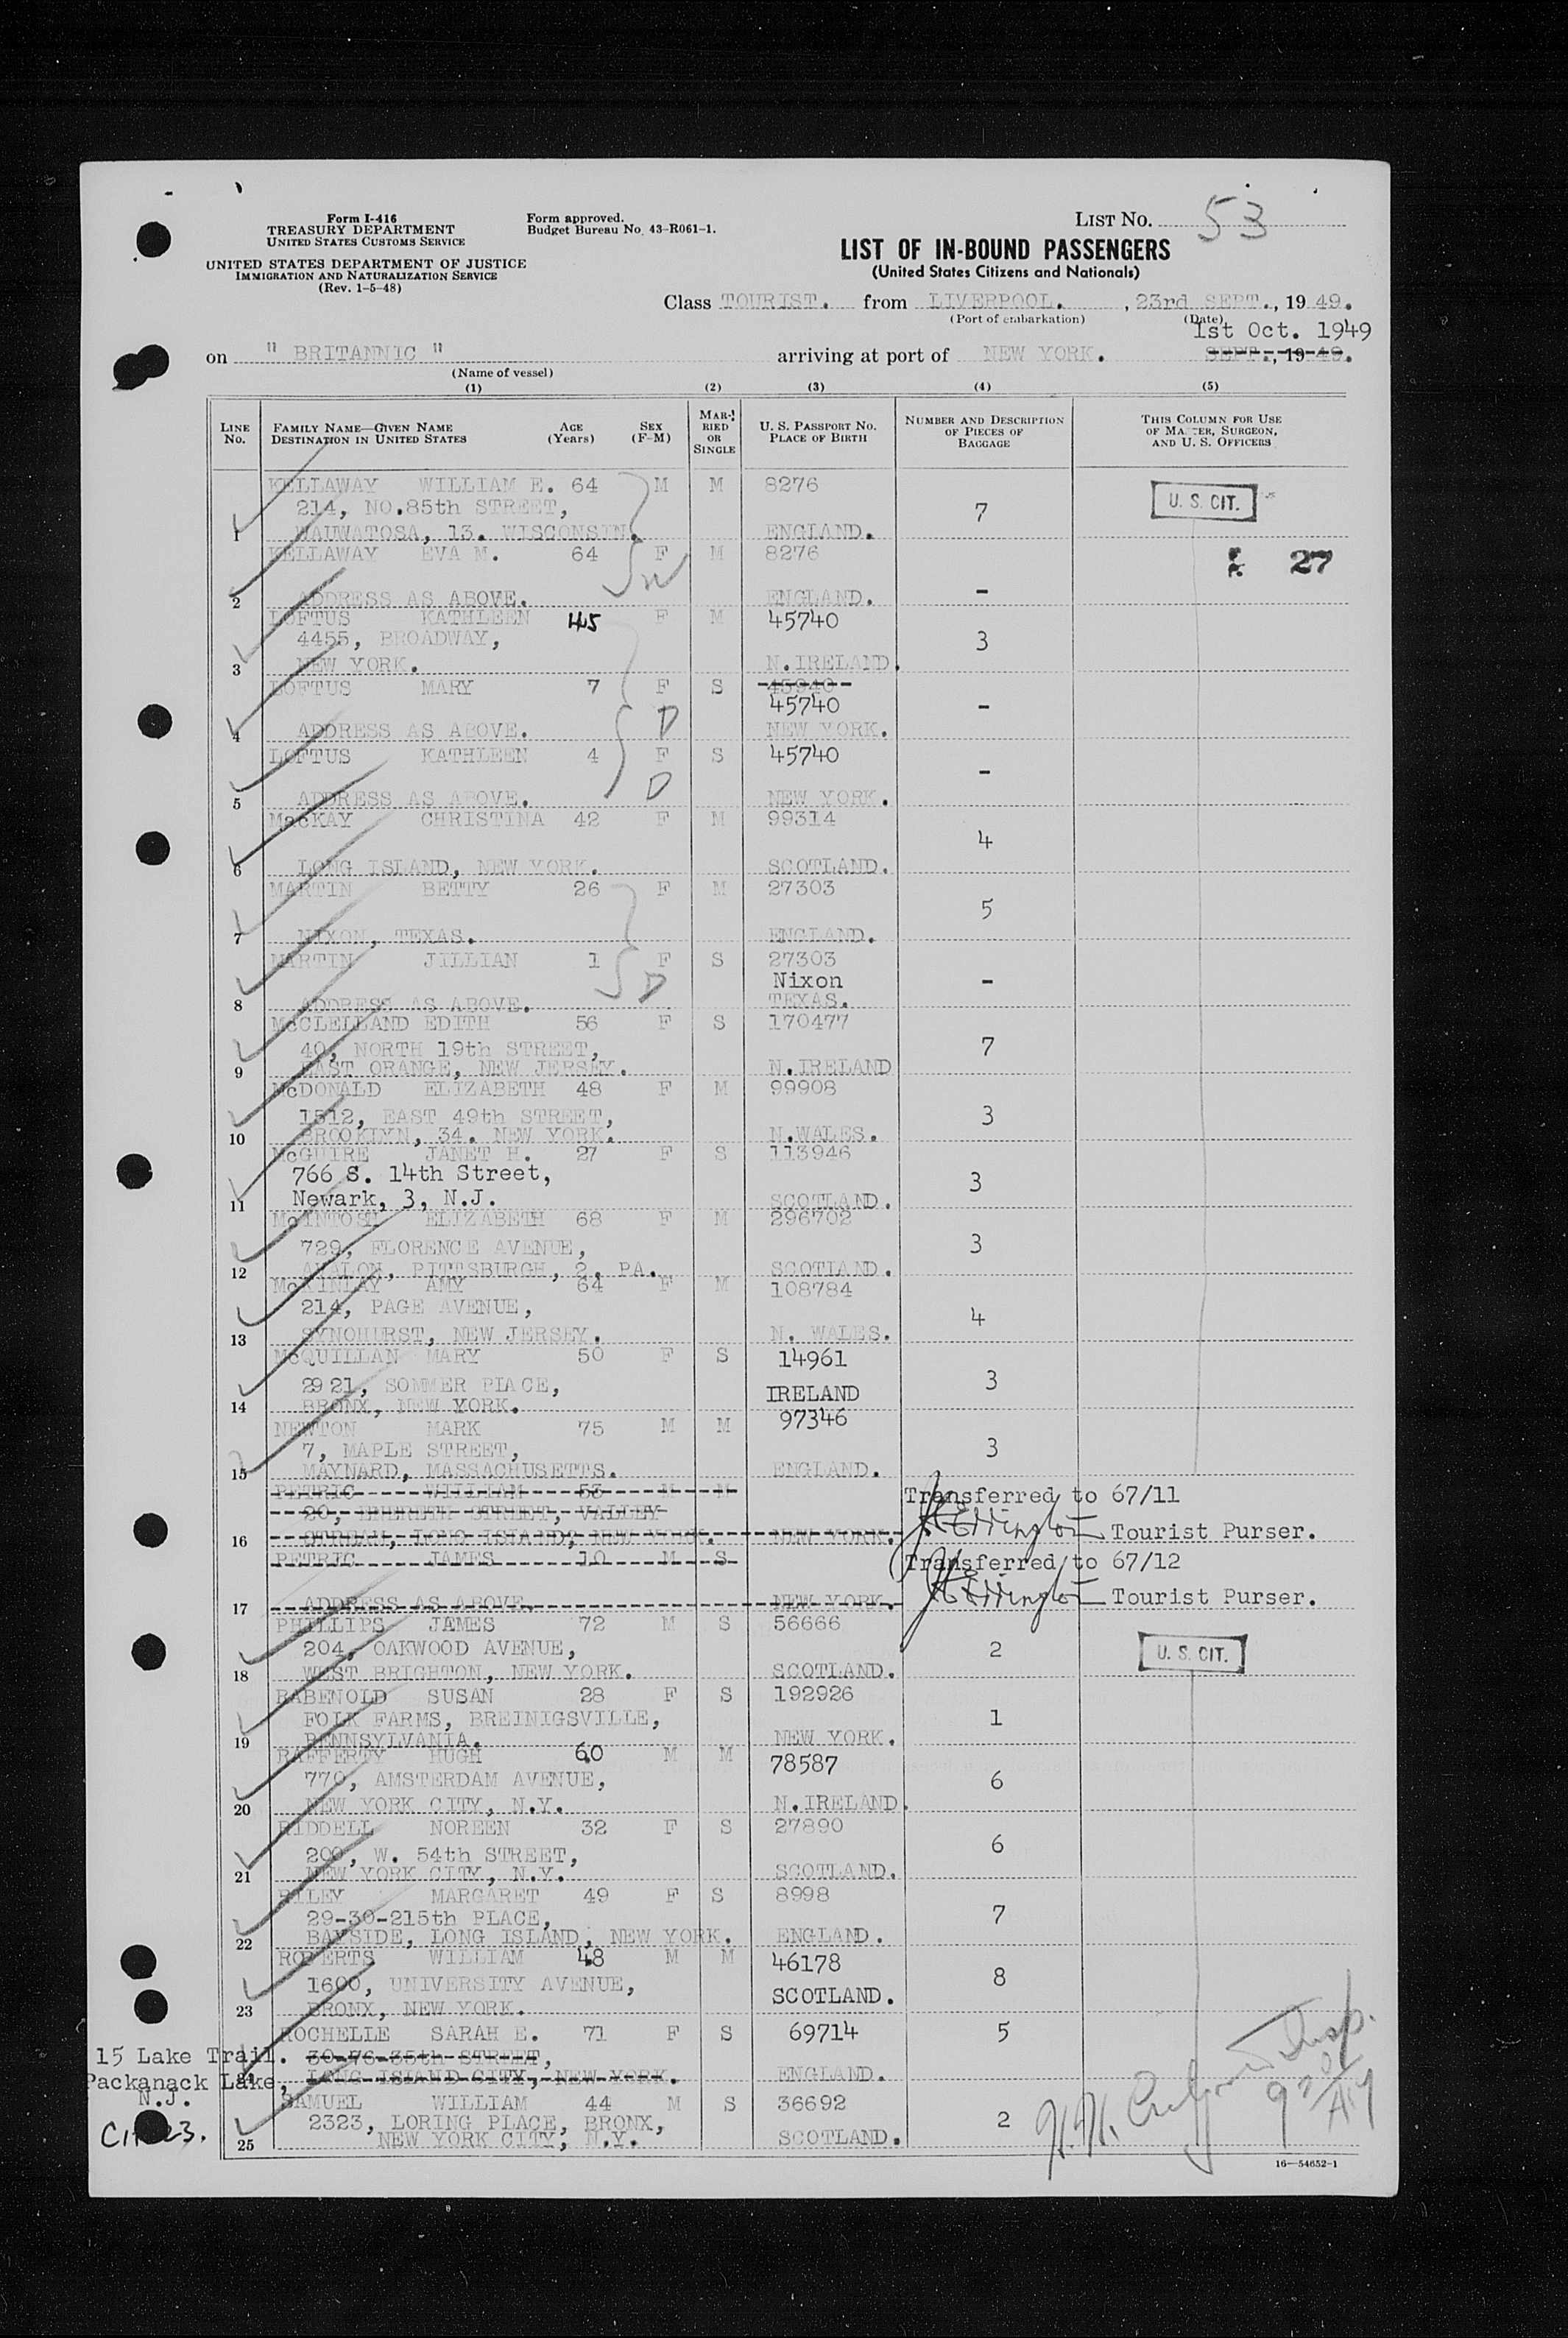 Form I-416
TREASURY DEPARTMENT
UNITED STATES CUSTOMS SERVICE
UNITED STATES DEPARTMENT OF JUSTICE
IMMIGRATION AND NATURALIZATION SERVICE
(Rev. 1-5-48)
Form approved.
Budget Bureau No. 43-R061-1.
LIST NO. 53
LIST OF IN-BOUND PASSENGERS
(United States Citizens and Nationals)
Class TOURIST. from LIVERPOOL. , 23rd SEPT., 19 49.
(Port of embarkation) (Date)
1st Oct. 1949
on " BRITANNIC " arriving at port of NEW YORK. SEPT., 19 49.
(Name of vessel)
(1) (2) (3) (4) (5)
LINE No. FAMILY NAME—GIVEN NAME DESTINATION IN UNITED STATES AGE (Years) SEX (F-M) MARRIED OR SINGLE U. S. PASSPORT NO. PLACE OF BIRTH NUMBER AND DESCRIPTION OF PIECES OF BAGGAGE THIS COLUMN FOR USE OF MASTER, SURGEON, AND U. S. OFFICERS
KELLAWAY WILLIAM E. 64 M M 8276
214, NO.85th STREET, 7 U. S. CIT.
1 WAUWATOSA, 13. WISCONSIN. ENGLAND.
KELLAWAY EVA M. 64 F M 8276
27
2 ADDRESS AS ABOVE. ENGLAND. -
LOFTUS KATHLEEN 45 F M 45740
4455, BROADWAY, 3
3 NEW YORK. N.IRELAND.
LOFTUS MARY 7 F S 45940
45740 -
4 ADDRESS AS ABOVE. D NEW YORK.
LOFTUS KATHLEEN 4 F S 45740
-
5 ADDRESS AS ABOVE. D NEW YORK.
MacKAY CHRISTINA 42 F M 99314
4
6 LONG ISLAND, NEW YORK. SCOTLAND.
MARTIN BETTY 26 F M 27303
5
7 NIXON, TEXAS. ENGLAND.
MARTIN JILLIAN 1 F S 27303
D Nixon -
8 ADDRESS AS ABOVE. TEXAS.
McCLELLAND EDITH 56 F S 170477
40, NORTH 19th STREET, 7
9 EAST ORANGE, NEW JERSEY. N.IRELAND
McDONALD ELIZABETH 48 F M 99908
1512, EAST 49th STREET, 3
10 BROOKLYN, 34. NEW YORK. N.WALES.
McGUIRE JANET H. 27 F S 113946
766 S. 14th Street, 3
11 Newark, 3, N.J. SCOTLAND.
McINTOSH ELIZABETH 68 F M 296702
729, FLORENCE AVENUE, 3
12 AVALON, PITTSBURGH, 2, PA. SCOTLAND.
McKINLAY AMY 64 F M 108784
214, PAGE AVENUE, 4
13 LYNDHURST, NEW JERSEY. N. WALES.
McQUILLAN MARY 50 F S 14961
2921, SOMMER PLACE, IRELAND 3
14 BRONX, NEW YORK.
NEWTON MARK 75 M M 97346
7, MAPLE STREET, 3
15 MAYNARD, MASSACHUSETTS. ENGLAND.
PETRIC WILLIAM 53 M M Transferred to 67/11
20, STREET, VALLEY
16 STREAM, LONG ISLAND, NEW YORK. NEW YORK. Tourist Purser.
PETRIC JAMES 10 M S Transferred to 67/12
17 ADDRESS AS ABOVE. NEW YORK. Tourist Purser.
PHILLIPS JAMES 72 M S 56666
204, OAKWOOD AVENUE, 2 U. S. CIT.
18 WEST BRIGHTON, NEW YORK. SCOTLAND.
RABENOLD SUSAN 28 F S 192926
FOLK FARMS, BREINIGSVILLE, 1
19 PENNSYLVANIA. NEW YORK.
RAFFERTY HUGH 60 M M 78587
770, AMSTERDAM AVENUE, 6
20 NEW YORK CITY, N.Y. N.IRELAND.
RIDDELL NOREEN 32 F S 27890
200, W. 54th STREET, 6
21 NEW YORK CITY, N.Y. SCOTLAND.
RILEY MARGARET 49 F S 8998
29-30-215th PLACE, 7
22 BAYSIDE, LONG ISLAND, NEW YORK. ENGLAND.
ROBERTS WILLIAM 48 M M 46178
1600, UNIVERSITY AVENUE, SCOTLAND. 8
23 BRONX, NEW YORK.
ROCHELLE SARAH E. 71 F S 69714 5
15 Lake Trail. 30-76-35th STREET,
Packanack Lake, 24 LONG ISLAND CITY, NEW YORK. ENGLAND.
N.J. SAMUEL WILLIAM 44 M S 36692
2323, LORING PLACE, BRONX, 2
25 NEW YORK CITY, N.Y. SCOTLAND.
16—54652-1